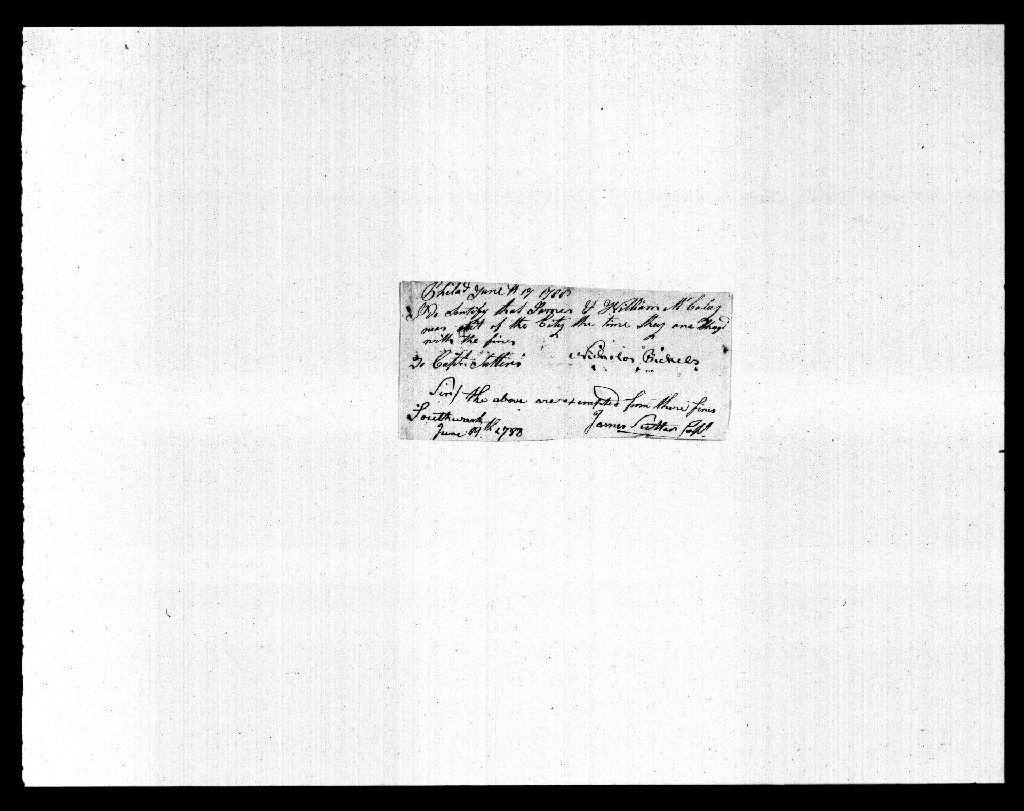 Philad June 17 1788
I Do Sertify that James & William McCaley
was out of the City the time they are Charg'd
with the fine
To Captn Sutter's Nicholas Bickels
Sir/ the above are exempted from there fines
Southwark James Sutter Capt.
June 19th 1788